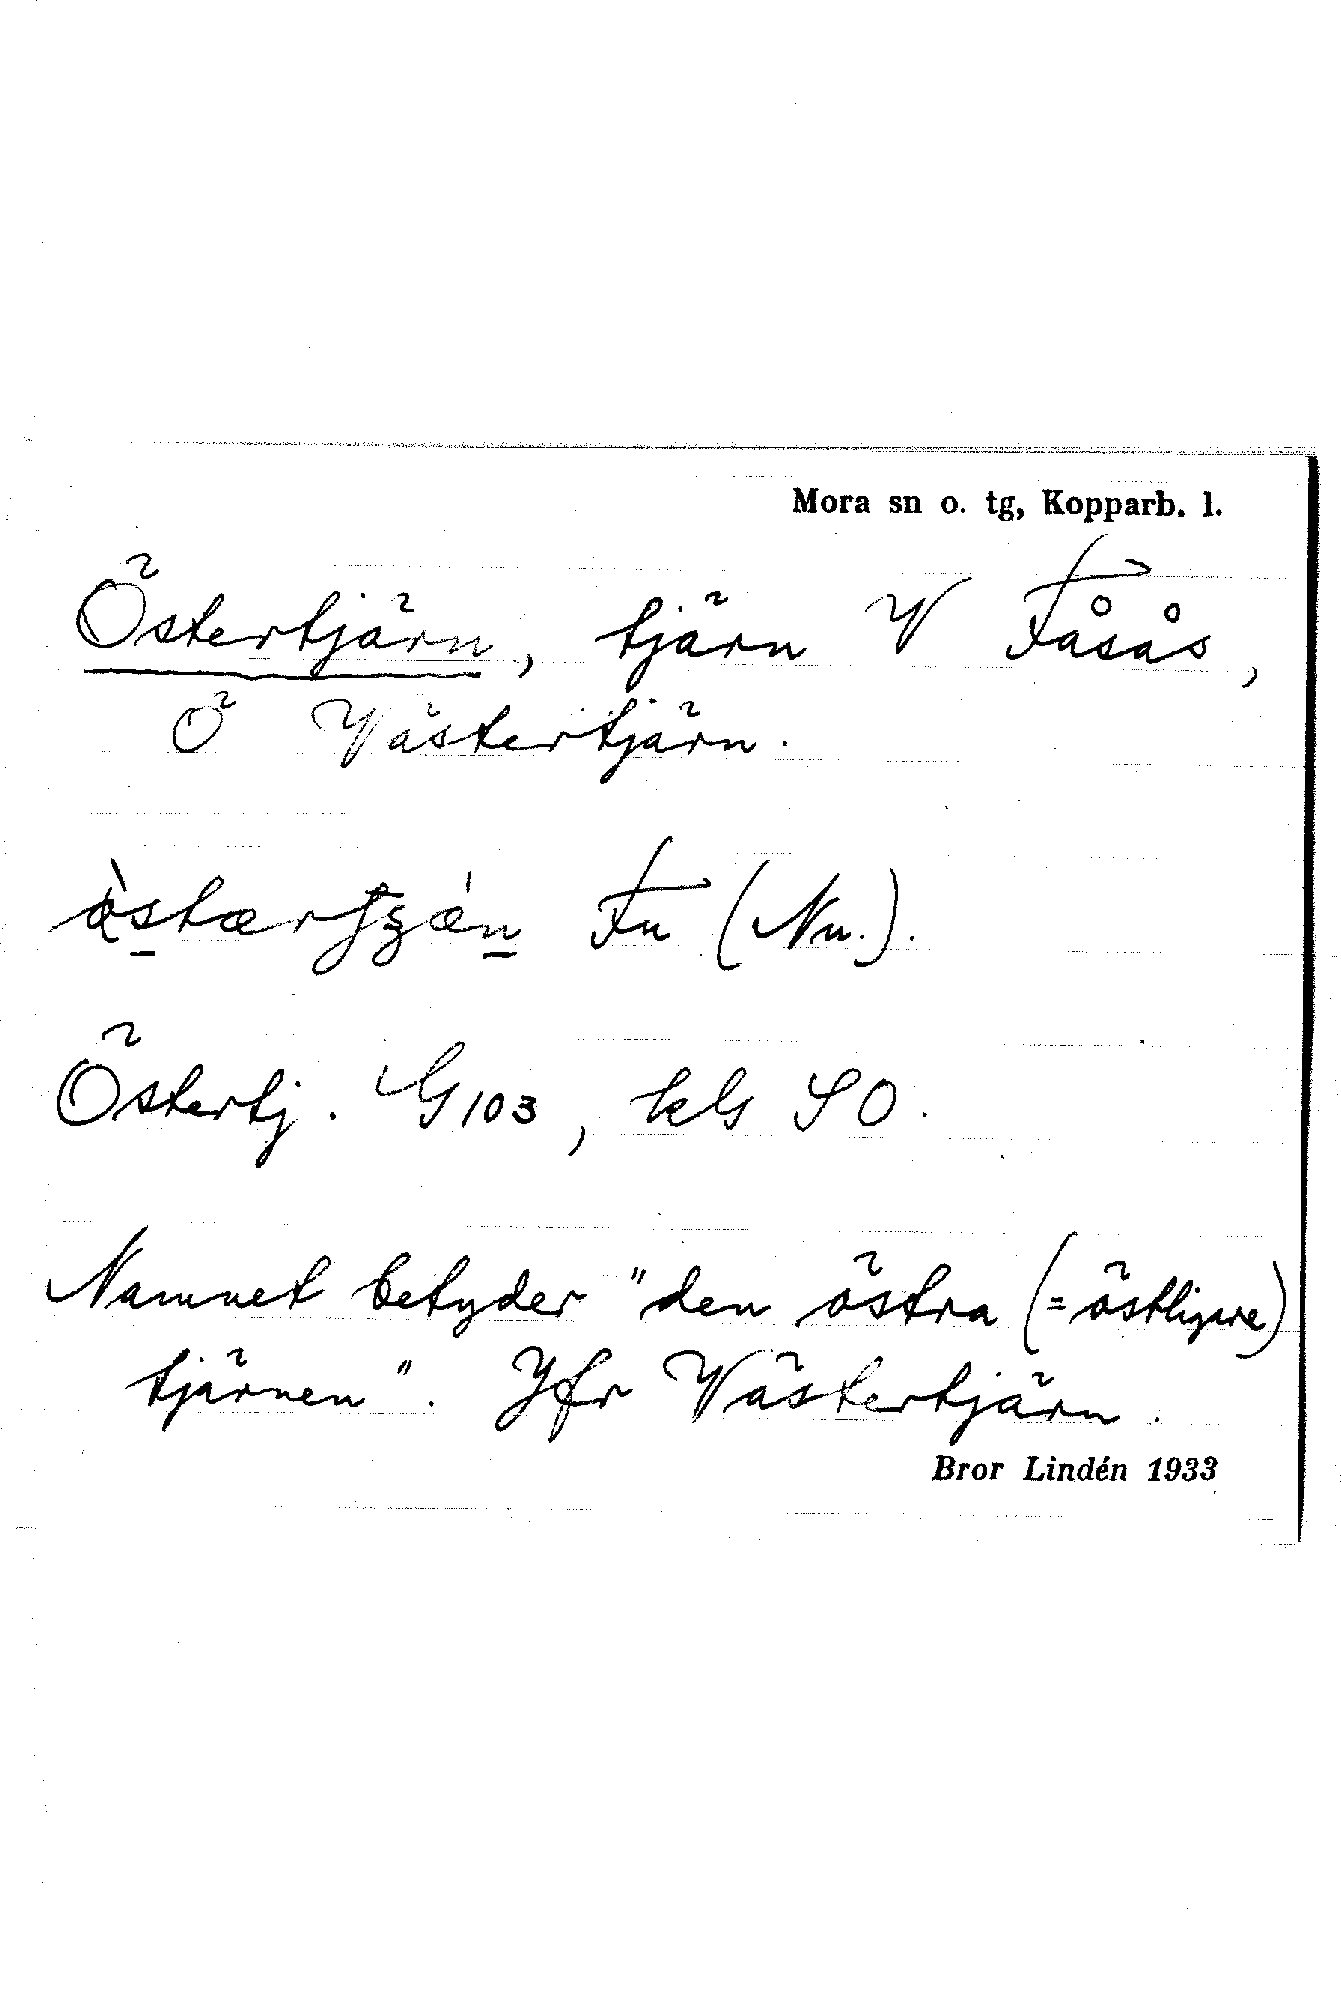 Mora sn o. tg, Kopparb. l.
Östertjärn, tjärn V Fåsås,
Ö Västertjärn.
Fu (Nu.).
Östertj. G103, kG SO.
Namnet betyder "den östra (=östligare)
tjärnen". Jfr Västertjärn.
Bror Lindén 1933